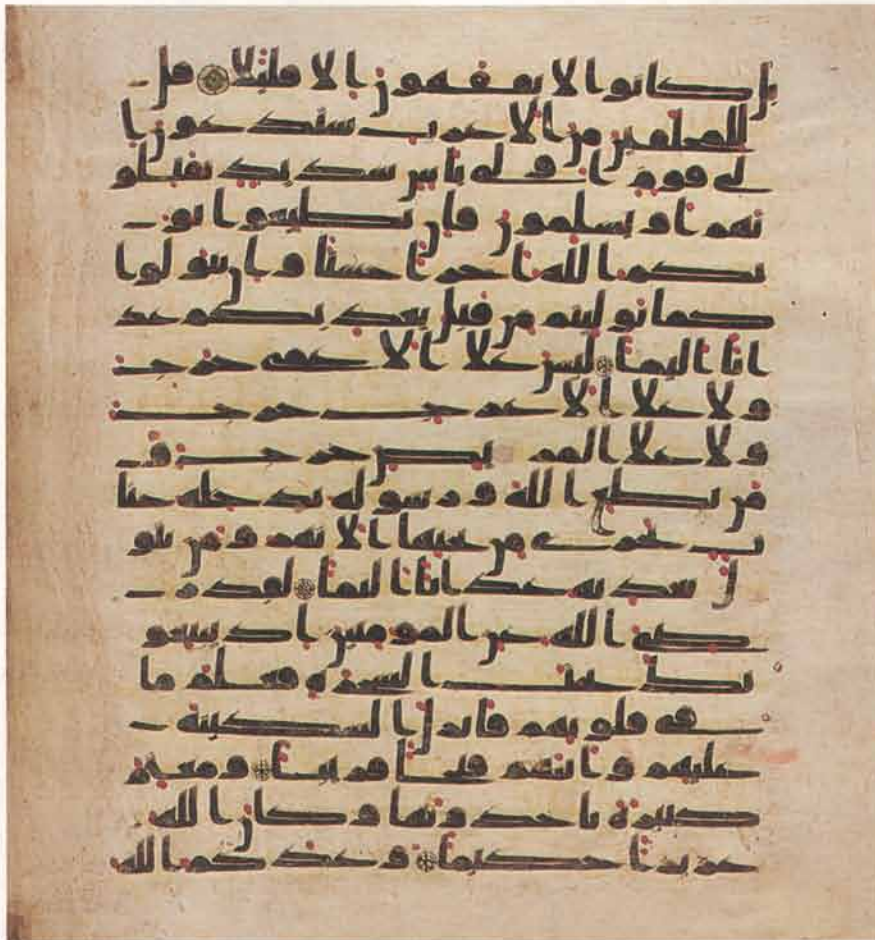 بل كانوا لا يفقهون الا قليلا قل
للمخلفين من الاعراب ستدعون ا
لى قوم اولى باس شديد تقتلو
نهم او يسلمون فان تطيعوا يو
تكم الله اجرا حسنا وان تتولوا
كما توليتم من قبل يعذبكم عذ
ابا اليما ليس علا الاعمى حرج
ولا علا الاعرج حرج
ولا علا المريض حرج و
من يطع الله ورسوله يدخله جنا
ت تجرى من تحتها الانهر ومن يتو
ل يعذبه عذابا اليما لقد ر
ضى الله عن المومنين اذ يبيعو
نك تحت الشجرة فعلم ما
فى قلوبهم فانزل السكينة
عليهم واثبهم فتحا قريبا ومغنم
كثيرة ياخذونها وكان الله
عزيزا حكيما وعدكم الله